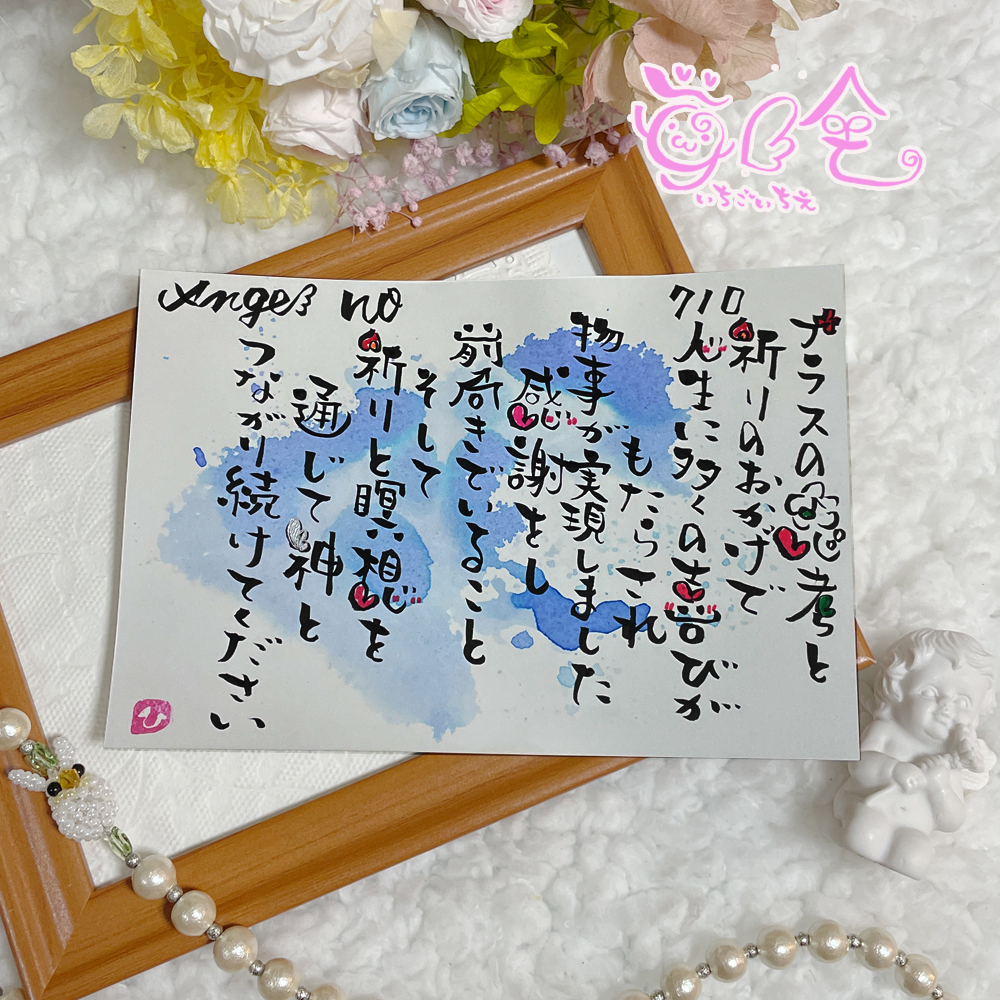 Angel no 710
プラスの思考と
祈りのおかげで
人生に多くの喜びが
もたらされ
物事が実現しました
感謝をし
前向きでいること
そして
祈りと瞑想を
通じて神と
つながり続けてください
いちごいちえ